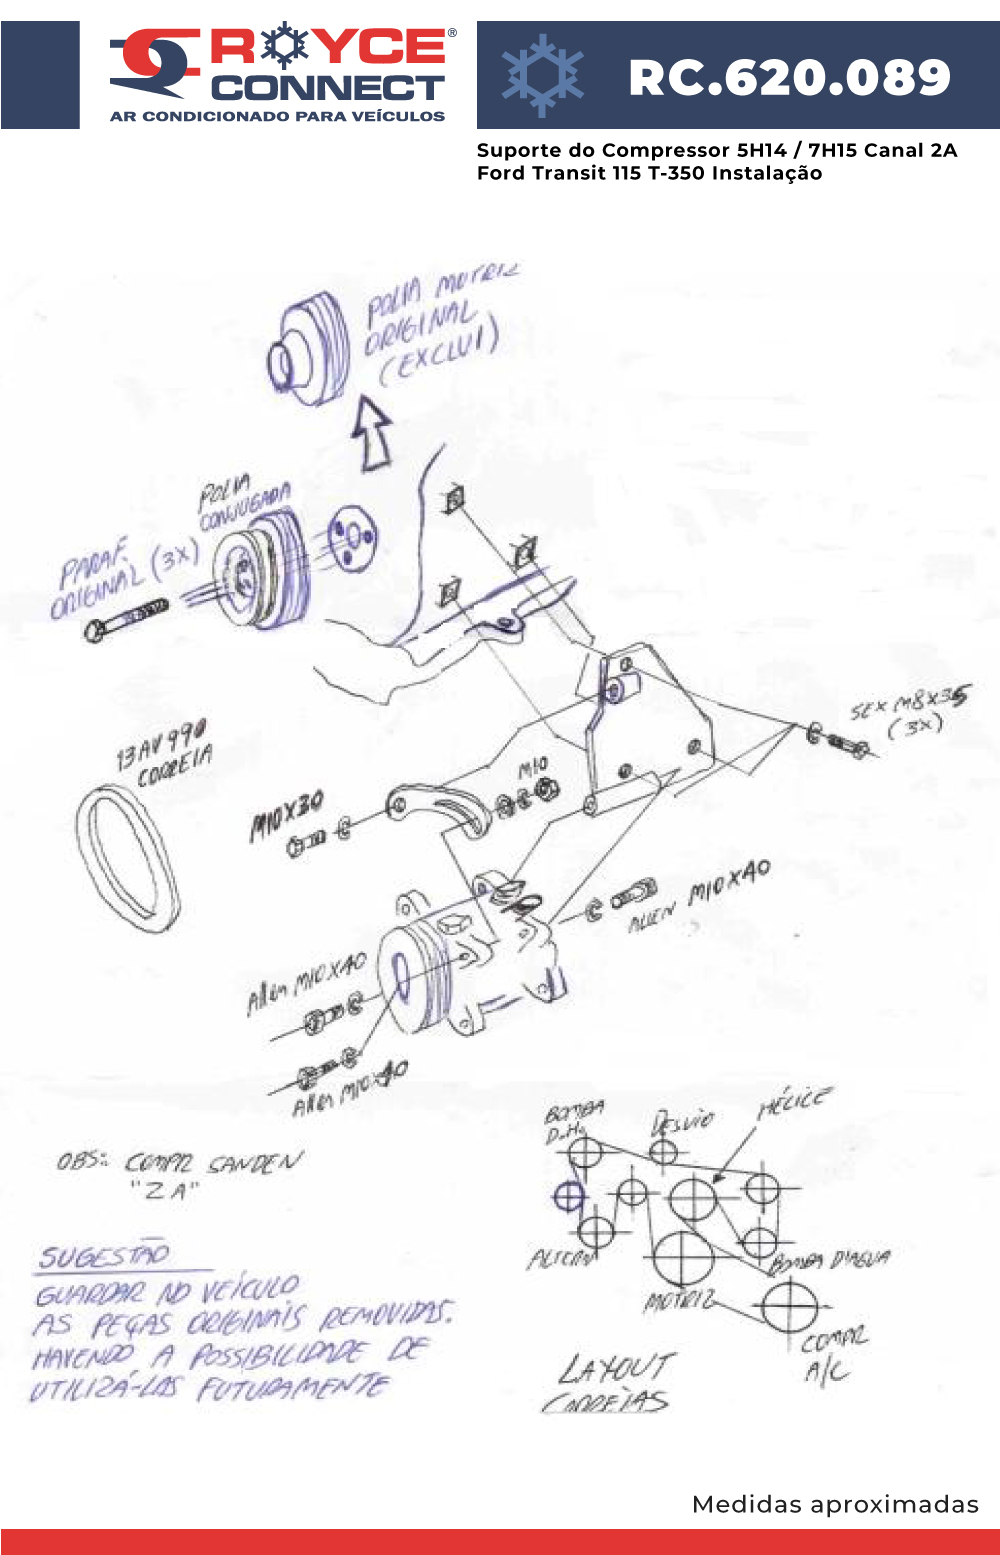 ROYCE®
CONNECT
AR CONDICIONADO PARA VEÍCULOS
RC.620.089
Suporte do Compressor 5H14 / 7H15 Canal 2A
Ford Transit 115 T-350 Instalação
POLIA MOTRIZ
ORIGINAL
(EXCLUI)
POLIA
CONJUGADA
PARAF.
ORIGINAL (3X)
SEX M8X35
(3X)
13AV990
CORREIA
M10
M10X30
ALLEN M10X40
Allen M10X40
Allen M10X40
BOMBA
D.H.
DESVIO
HÉLICE
ALTERN
BOMBA D'AGUA
MOTRIZ
COMPR
A/C
LAYOUT
CORREIAS
OBS: COMPR SANDEN
"2A"
SUGESTÃO
GUARDAR NO VEÍCULO
AS PEÇAS ORIGINAIS REMOVIDAS.
HAVENDO A POSSIBILIDADE DE
UTILIZÁ-LAS FUTURAMENTE
Medidas aproximadas